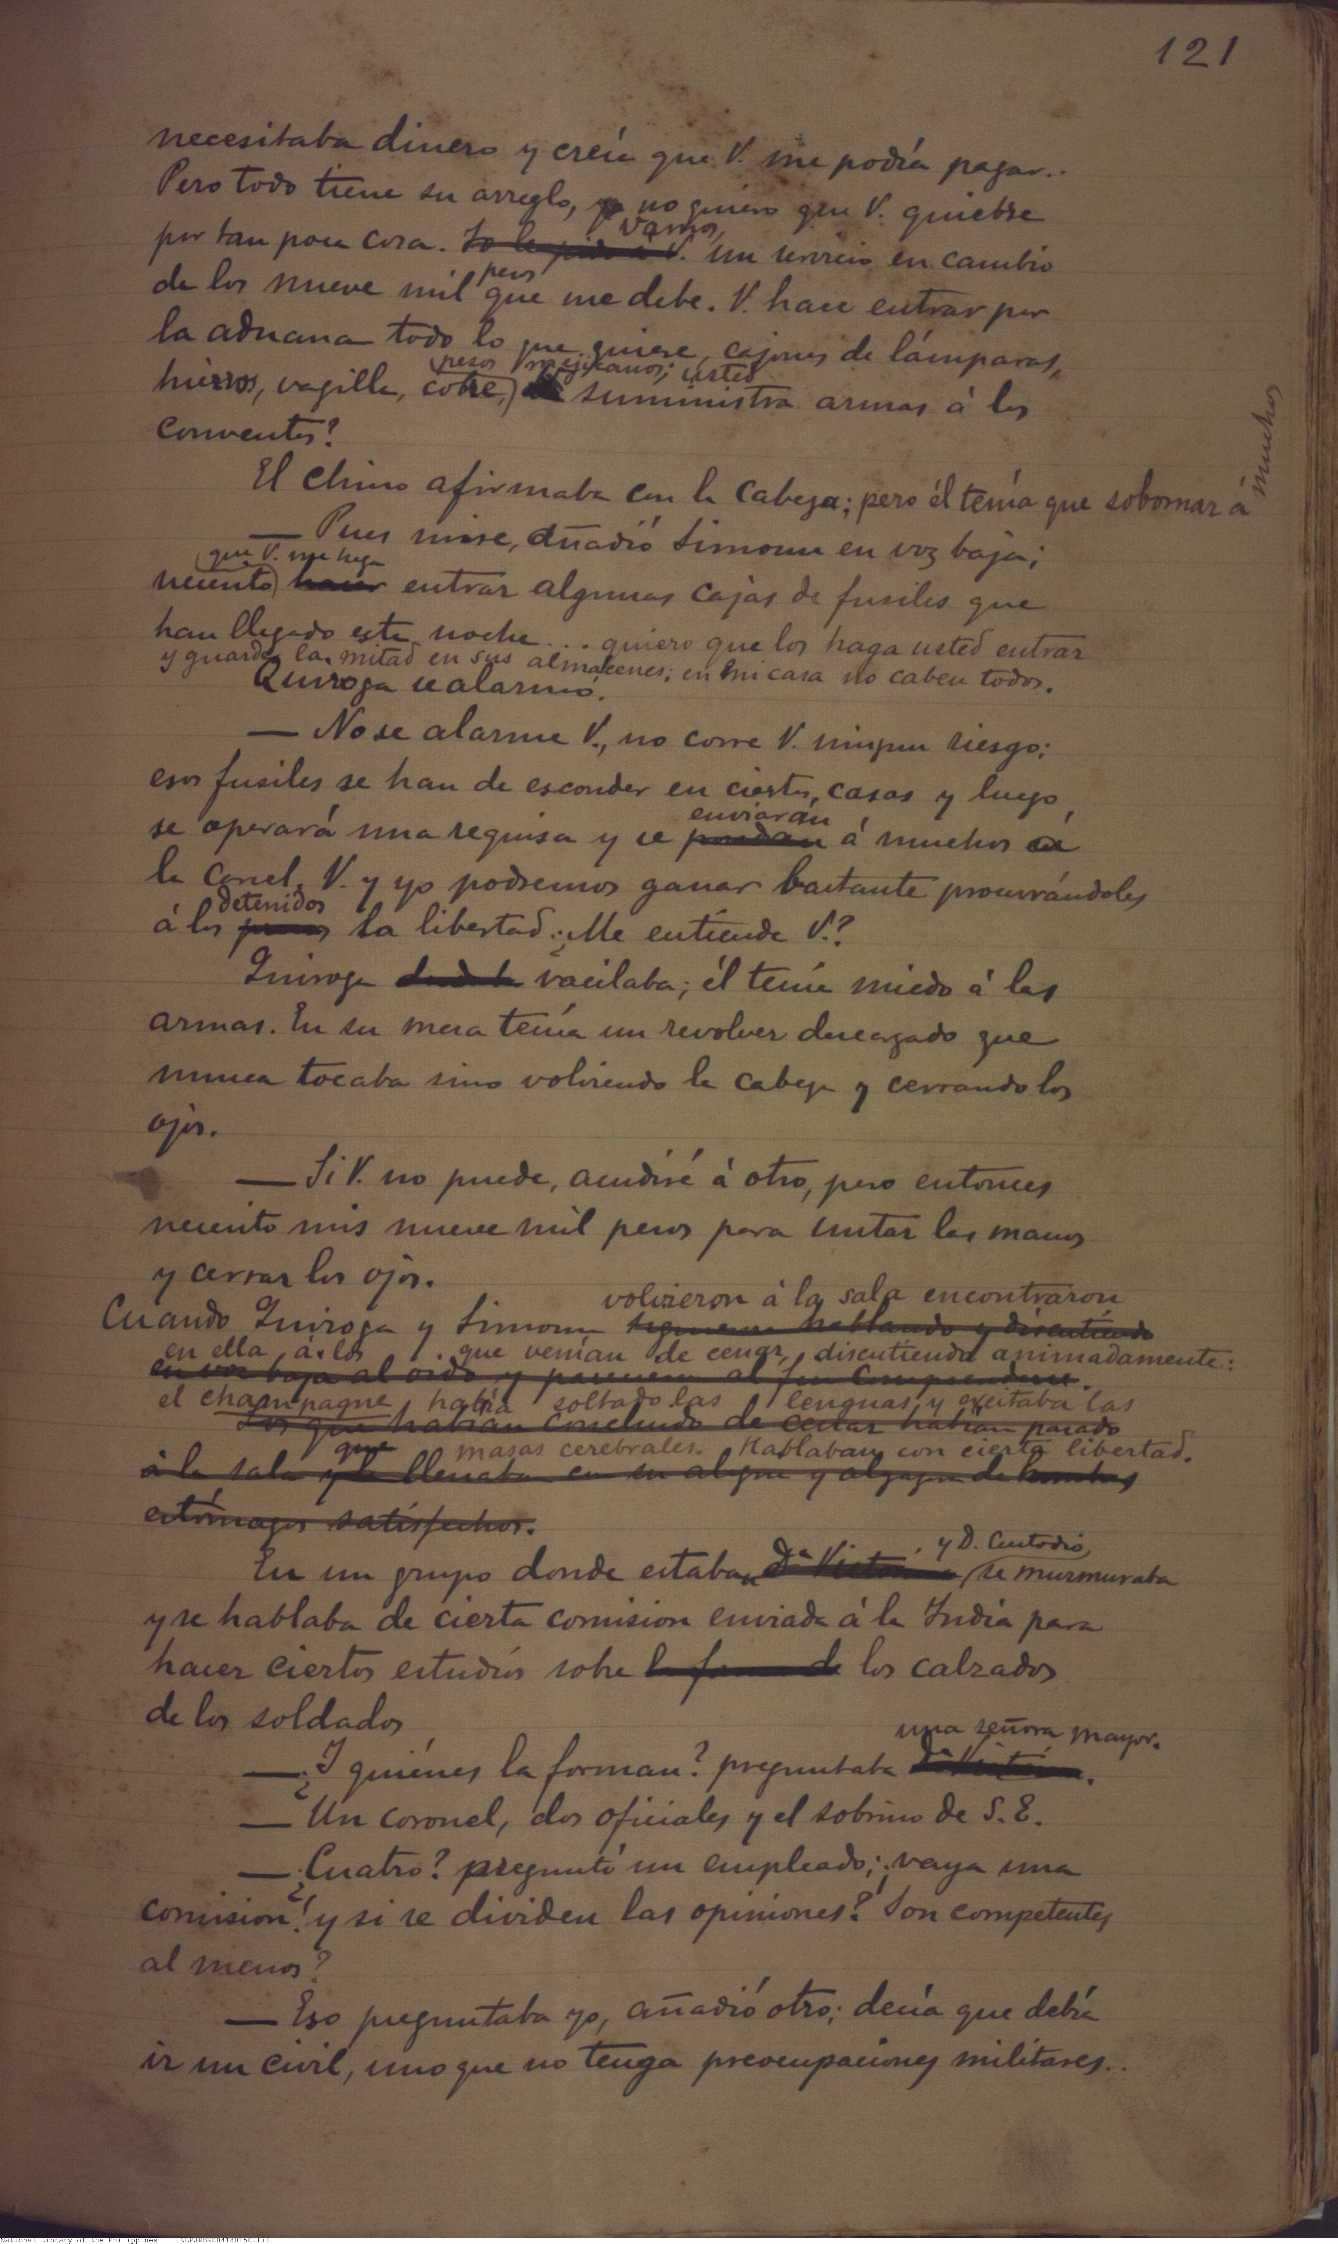 121
necesitaba dinero y creía que V. me podría pagar..
Pero todo tiene su arreglo, no quiero que V. quiebre
Vamos,
por tan poca cosa. Yo le pido á V. un servicio en cambio
pesos
de los nueve mil que me debe. V. hace entrar por
la aduana todo lo que quiere, cajones de lámparas,
pesos mejicanos; usted
hierros, vagilla, cobre, suministra armas á los
conventos?
El chino afirmaba con la cabeza; pero él tenía que sobornar á
muchos
— Pues mire, añadió Simoun en voz baja;
que V. me haga
necesito hacer entrar algunas cajas de fusiles que
han llegado esta noche... quiero que los haga usted entrar
y guarde la mitad en sus almacenes; en mi casa no caben todos.
Quiroga se alarmó.
— No se alarme V., no corre V. ningun riesgo:
esos fusiles se han de esconder en ciertas casas y luego
enviarán
se operará una requisa y se á muchos á
la carcel. V. y yo podremos ganar bastante procurándoles
detenidos
á los presos la libertad. ¿Me entiende V.?
Quiroga dudaba vacilaba; él tenía miedo á las
armas. En su mesa tenía un revolver descargado que
nunca tocaba sino volviendo la cabeza y cerrando los
ojos.
— Si V. no puede, acudiré á otro, pero entonces
necesito mis nueve mil pesos para untar las manos
y cerrar los ojos.
volvieron á la sala encontraron
Cuando Quiroga y Simoun siguieron hablando y discutiendo
en ella á los que venían de cenar, discutiendo animadamente:
en voz baja al oido y parecieron al fin comprenderse.
el champagne había soltado las lenguas y excitaba las
Los que habían concluido de cenar habían pasado
que masas cerebrales. Hablaban con cierta libertad.
á la sala y la llenaban con su alegre y algazara de hombres
estómagos satisfechos.
y D. Custodio,
En un grupo donde estaban Dª Victorina se murmuraba
y se hablaba de cierta comision enviada á la India para
hacer ciertos estudios sobre la forma de los calzados
de los soldados
una señora mayor.
— ¿Y quiénes la forman? preguntaba Dª Victorina.
— Un coronel, dos oficiales y el sobrino de S. E.
— ¿Cuatro? preguntó un empleado; ¡vaya una
comision! y si se dividen las opiniones? Son competentes
al menos?
— Eso preguntaba yo, añadió otro; decía que debía
ir un civil, uno que no tenga preocupaciones militares..